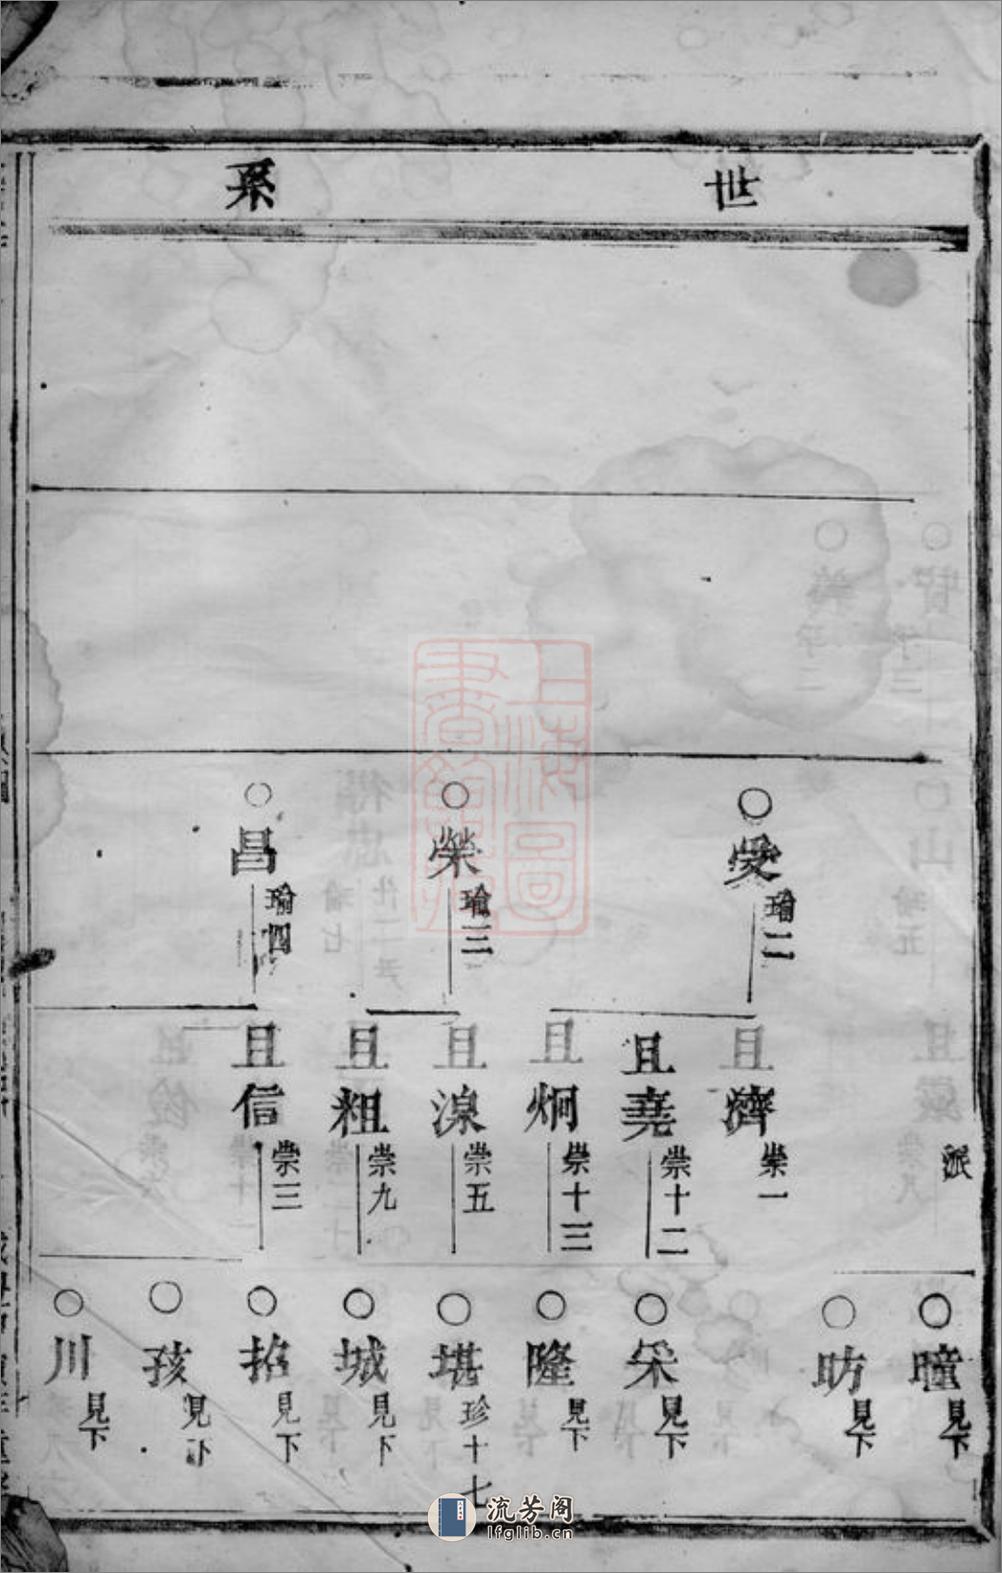 世系
○愛 瑜二
○榮 瑜三
○昌 瑜四
派
且濟 崇一
且堯 崇十二
且炯 崇十三
且湶 崇五
且粗 崇九
且信 崇三
○曈 見下
○昉 見下
○采 見下
○隆 見下
○堪 珍十七
○城 見下
○招 見下
○孩 見下
○川 見下
上海圖書館藏
流芳阁
lfglib.cn